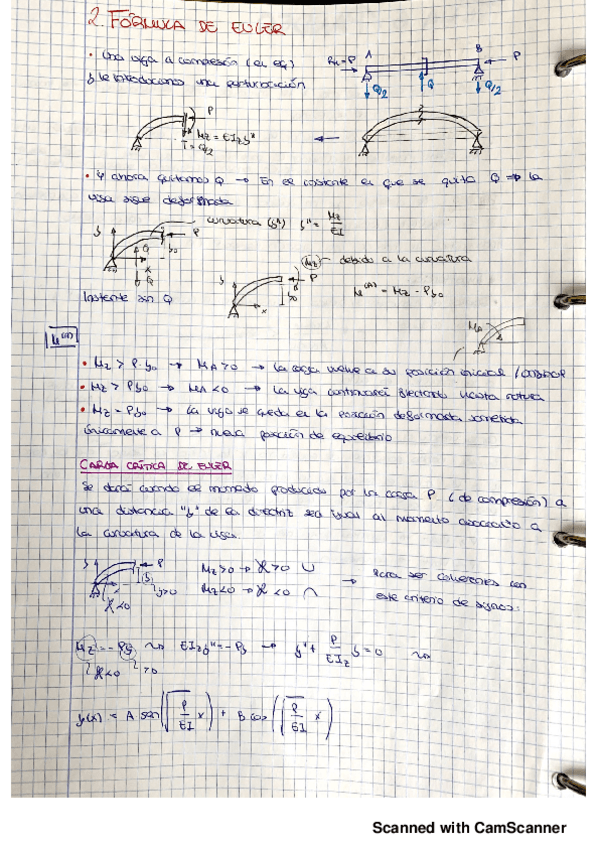 2. FÓRMULA DE EULER
• Una viga a compresión (en eq)
y le introducimos una perturbación
RH=P
A
B
P
Q/2
Q
Q/2
P
Mz = EIzy"
T = Q/2
• Y ahora quitamos Q → En el instante en que se quita Q ⇒ la
viga sigue deformada
curvatura (y") y" = Mz/EI
y
P
Q
y0
x
Q
Instante sin Q
y
P
y0
x
Mz debido a la curvatura
M(A) = Mz - Py0
MA
M(A)
• Mz > P·y0 → MA>0 → La viga vuelve a su posición inicial
• Mz > Py0 → MA<0 → La viga continuará flectando hasta rotura
• Mz = Py0 → La viga se queda en la posición deformada sometida
únicamente a P → nueva posición de equilibrio
CARGA CRÍTICA DE EULER
Se dará cuando el momento producido por la carga P (de compresión) a
una distancia "y" de la directriz sea igual al momento asociado a
la curvatura de la viga.
y
P
y
y>0
X<0
Mz>0 → X>0 ∪
Mz<0 → X<0 ∩
→ Para ser coherentes con
este criterio de signos:
Mz = -Py ⇝ EIzy" = -Py → y" + P/EIz y = 0 ⇝
X<0 >0
y(x) = A sen(√(P/EI) x) + B cos(√(P/EI) x)
Scanned with CamScanner